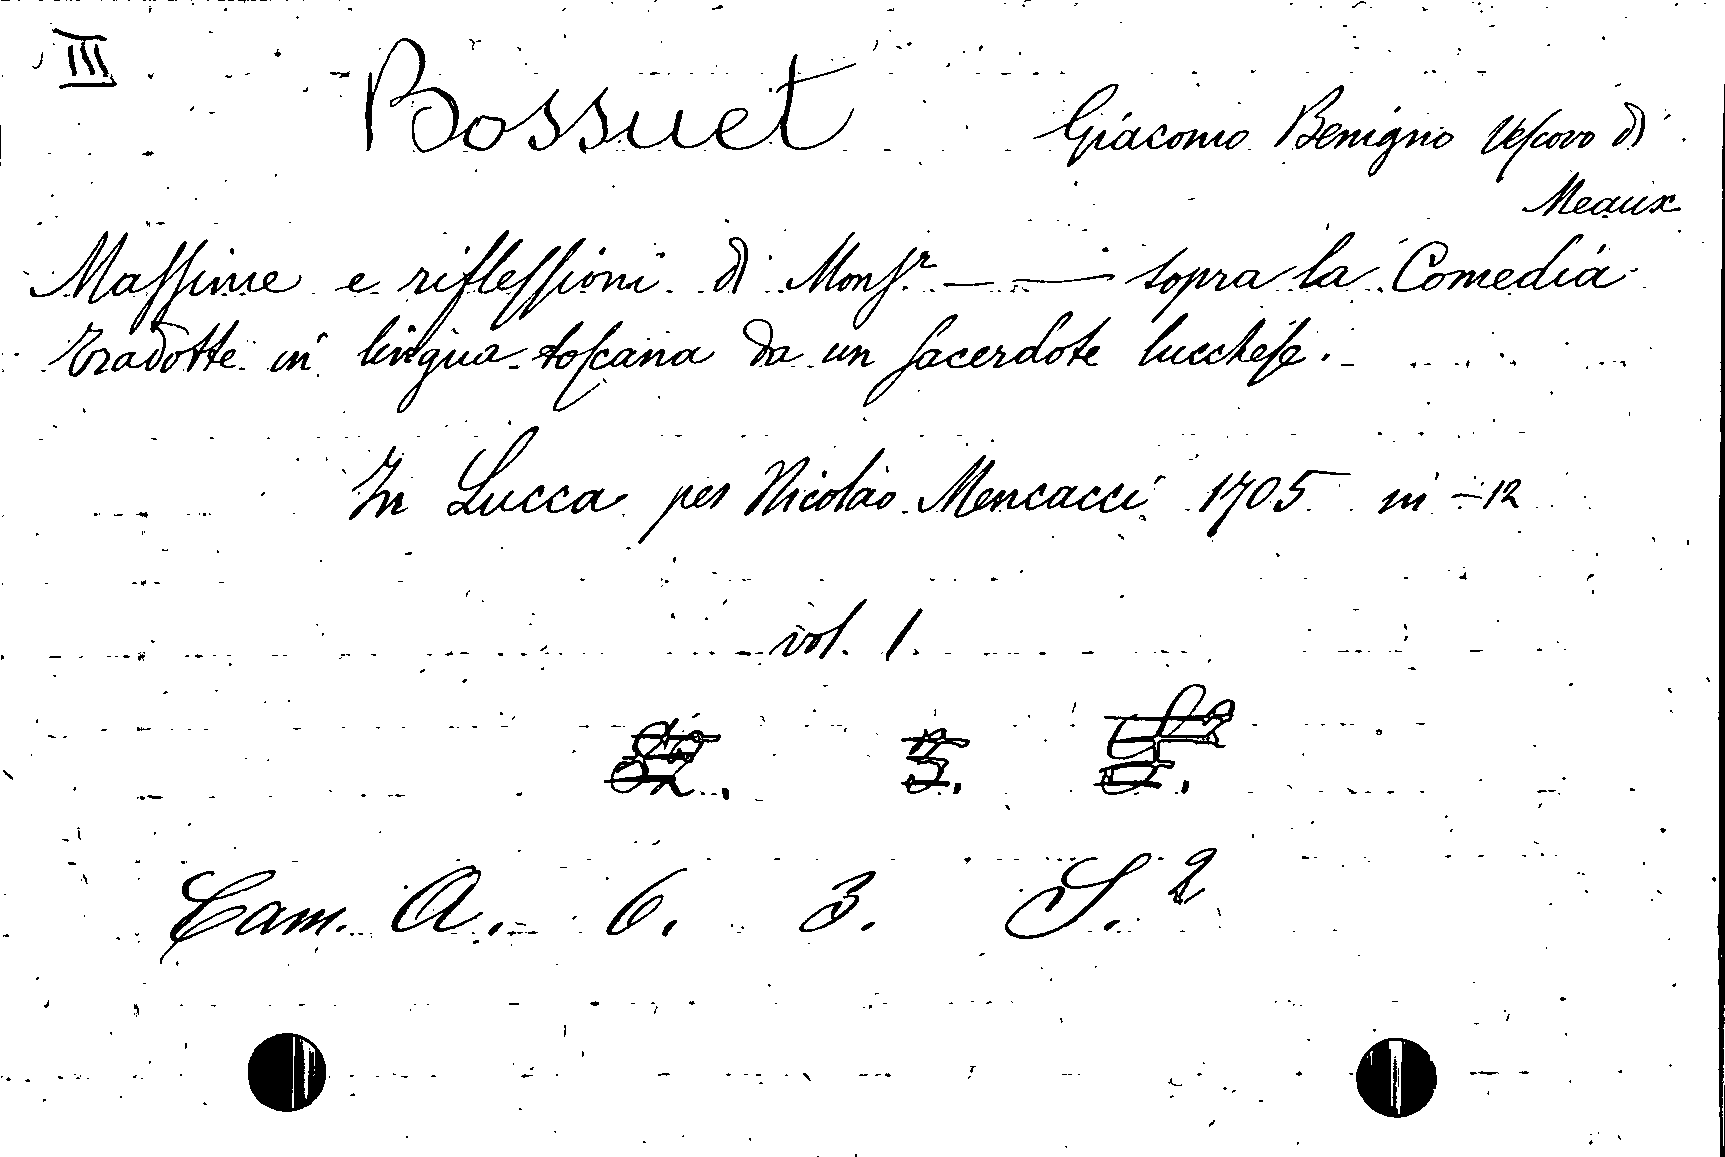 III
Bossuet Giacomo Benigno Vescovo di
Meaux
Massime e riflessioni di Mons.r — — sopra la Comedia
tradotte in lingua toscana da un sacerdote lucchese.
In Lucca per Nicolao Mencacci 1705 in -12
vol. 1.
Cam. A. 6. 3. S.2